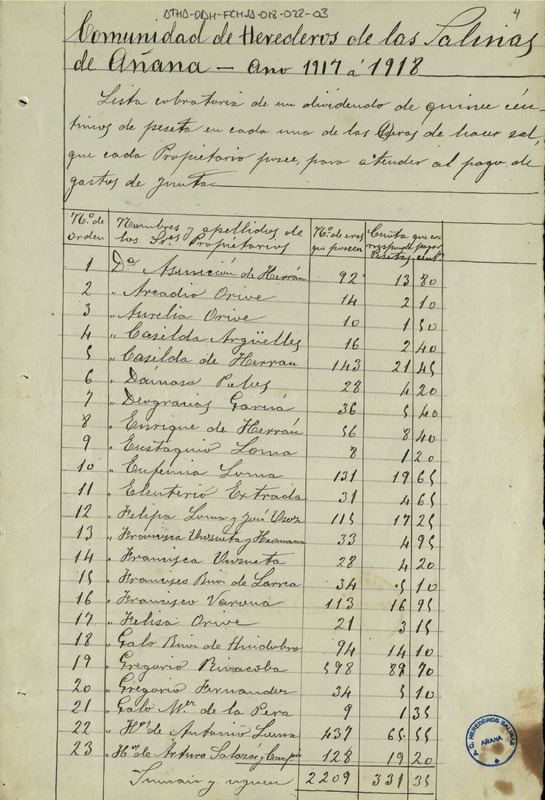 ATHA-DAH-FCHSA-018-022-03
4
Comunidad de Herederos de las Salinas
de Añana - Año 1917 á 1918
Lista cobratoria de un dividendo de quince cén-
timos de peseta en cada una de las Heras de hacer sal,
que cada Propietario posee, para atender al pago de
gastos de Junta
Nº. de Orden Nombres y apellidos de los Sres Propietarios Nº. de eras que poseen Cuota que corresponde pagar Pesetas cent.
1 Dª Asunción de Herrán 92 13 80
2 " Arcadio Orive 14 2 10
3 " Aurelia Orive 10 1 50
4 " Casilda Argüelles 16 2 40
5 " Casilda de Herrán 143 21 45
6 " Dámaso 28 4 20
7 " Deogracias García 36 5 40
8 " Enrique de Herrán 56 8 40
9 " Eustaquio Loma 8 1 20
10 " Eufemia Loma 131 19 65
11 " Eleuterio Extrada 31 4 65
12 " Felipa Loma y José 115 17 25
13 " Francisca Unzueta y Hermana 33 4 95
14 " Francisca Unzueta 28 4 20
15 " Francisco Ruiz de Larrea 34 5 10
16 " Francisco Varona 113 16 95
17 " Felisa Orive 21 3 15
18 " Galo Ruiz de Huidobro 94 14 10
19 " Gregorio Rivacoba 598 89 70
20 " Gregorio Fernandez 34 5 10
21 " Galo Mª de la Pera 9 1 35
22 " Hos de Antonio Loma 437 65 55
23 " Hos de Arturo Salazar y 128 19 20
Suman y siguen 2209 331 35
A.C. HEREDEROS SALINAS
AÑANA